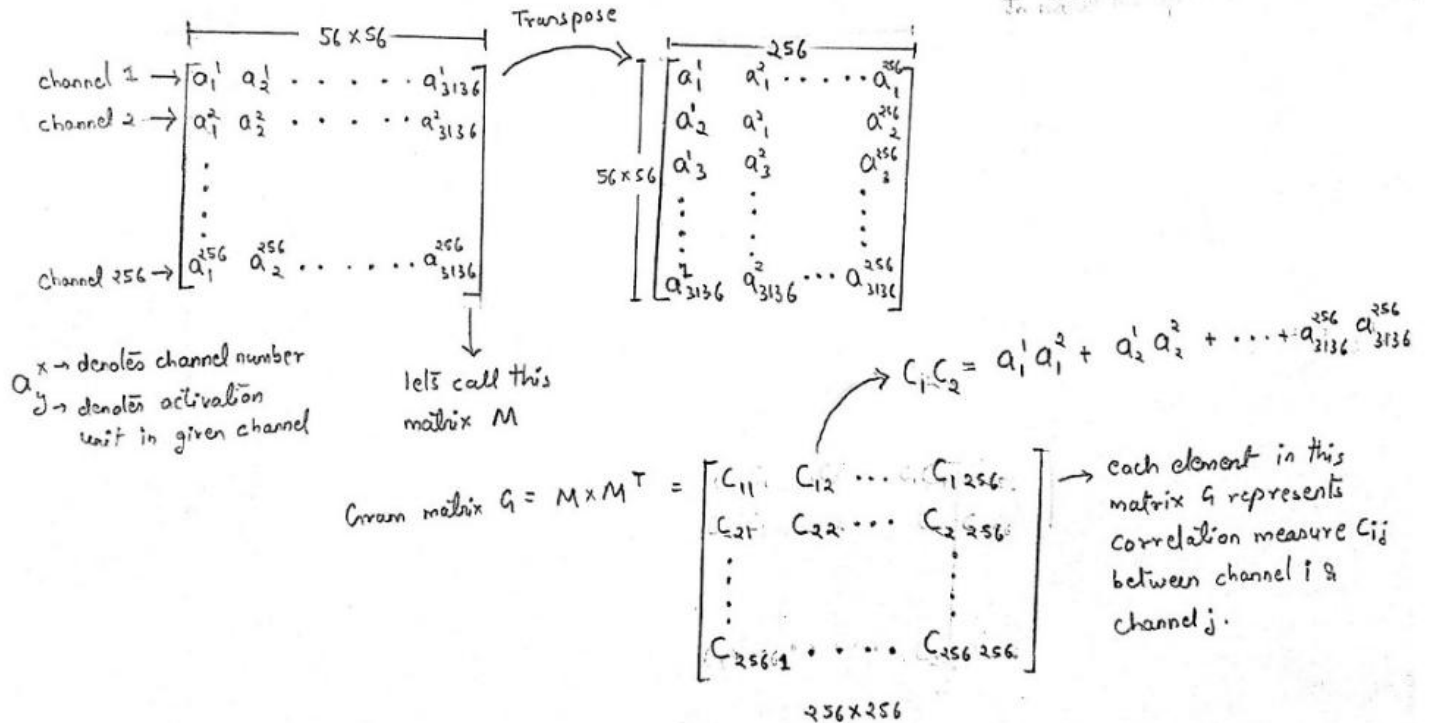 Transpose
56 × 56
256
channel 1 → a₁¹ a₂¹ · · · · · a¹₃₁₃₆
channel 2 → a₁² a₂² · · · · · a²₃₁₃₆
channel 256 → a₁²⁵⁶ a₂²⁵⁶ · · · · · · a²⁵⁶₃₁₃₆
56 × 56
a₁¹ a₁² · · · · · a₁²⁵⁶
a₂¹ a₁² a₂²⁵⁶
a₃¹ a₃² a₃²⁵⁶
a¹₃₁₃₆ a²₃₁₃₆ · · · a²⁵⁶₃₁₃₆
a x → denotes channel number
y → denotes activation
unit in given channel
lets call this
matrix M
C₁C₂ = a₁¹ a₁² + a₂¹ a₂² + · · · + a²⁵⁶₃₁₃₆ a²⁵⁶₃₁₃₆
Gram matrix G = M × Mᵀ =
C₁₁ C₁₂ · · · C₁ ₂₅₆
C₂₁ C₂₂ · · · C₂ ₂₅₆
C₂₅₆ ₁ · · · · C₂₅₆ ₂₅₆
256×256
each element in this
matrix G represents
correlation measure Cij
between channel i &
channel j.